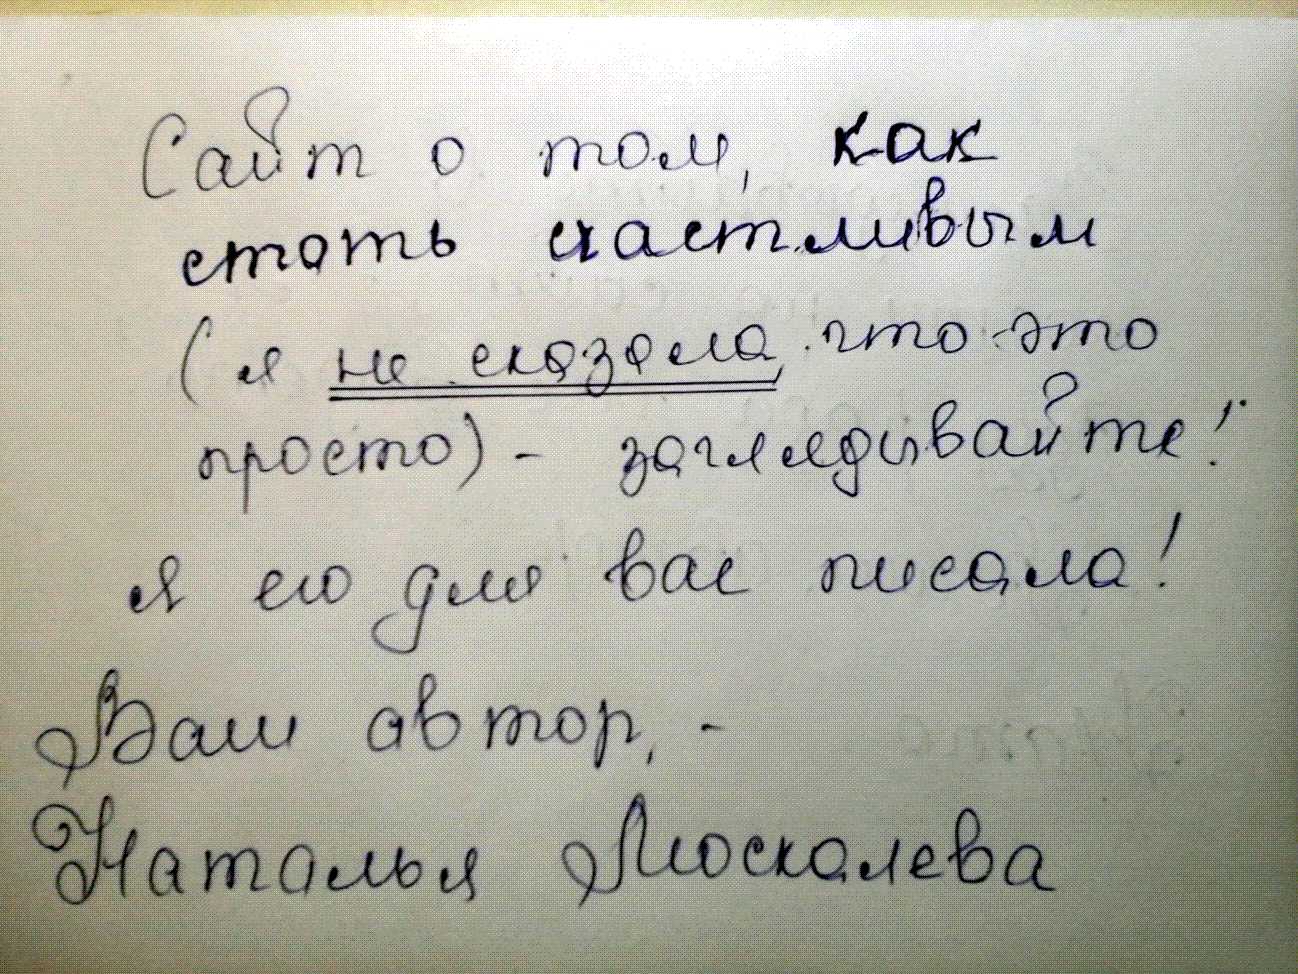 Сайт о том, как
стать счастливым
(я не сказала, что это
просто) - заглядывайте!
Я его для вас писала!
Ваш автор, -
Наталья Москалева